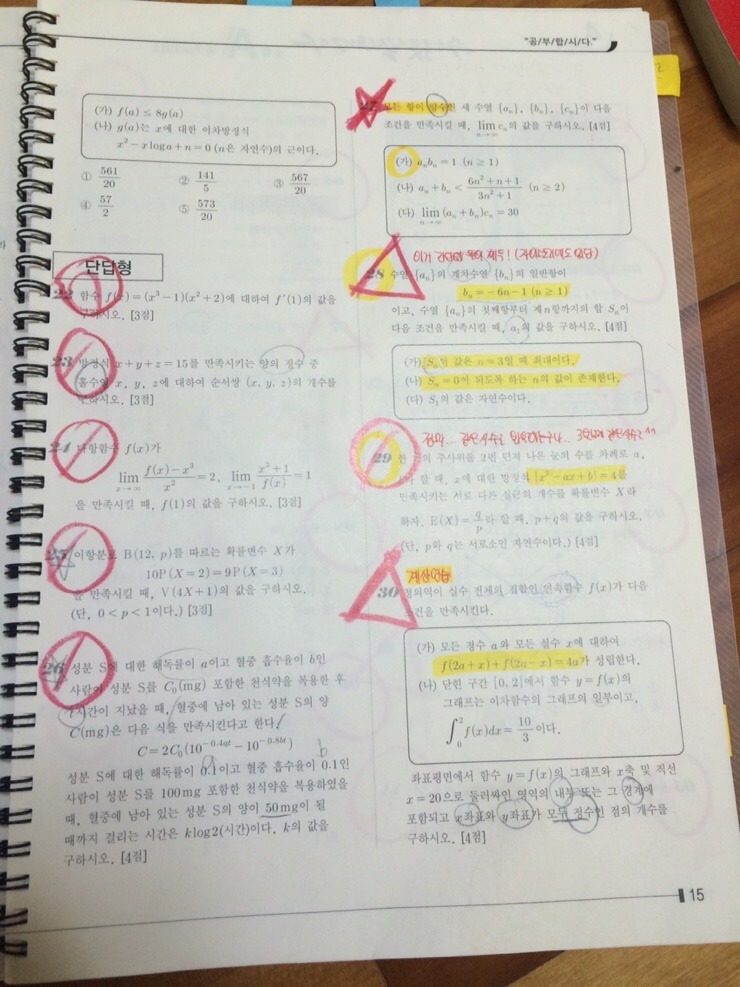 "공/부/합/시/다."
(가) f(a) ≤ 8g(a)
(나) g(a)는 x에 대한 이차방정식
x² − x log a + n = 0 (n은 자연수)의 근이다.
① 561/20 ② 141/5 ③ 567/20
④ 57/2 ⑤ 573/20
단답형
22 함수 f(x) = (x³−1)(x²+2)에 대하여 f′(1)의 값을
구하시오. [3점]
23 방정식 x+y+z = 15를 만족시키는 양의 정수 중
홀수인 x, y, z에 대하여 순서쌍 (x, y, z)의 개수를
구하시오. [3점]
24 다항함수 f(x)가
lim x→∞ (f(x)−x³)/x² = 2, lim x→−1 (x³+1)/f(x) = 1
을 만족시킬 때, f(1)의 값을 구하시오. [3점]
25 이항분포 B(12, p)를 따르는 확률변수 X가
10P(X=2) = 9P(X=3)
을 만족시킬 때, V(4X+1)의 값을 구하시오.
(단, 0<p<1이다.) [3점]
26 성분 S에 대한 해독률이 a이고 혈중 흡수율이 b인
사람이 성분 S를 C₀(mg) 포함한 천식약을 복용한 후
시간이 지났을 때, 혈중에 남아 있는 성분 S의 양
C(mg)은 다음 식을 만족시킨다고 한다.
b
a
성분 S에 대한 해독률이 0.1이고 혈중 흡수율이 0.1인
사람이 성분 S를 100mg 포함한 천식약을 복용하였을
때, 혈중에 남아 있는 성분 S의 양이 50mg이 될
때까지 걸리는 시간은 k log2(시간)이다. k의 값을
구하시오. [4점]
27 모든 항이 양수인 세 수열 {aₙ}, {bₙ}, {cₙ}이 다음
조건을 만족시킬 때, lim n→∞ cₙ의 값을 구하시오. [4점]
(가) aₙbₙ = 1 (n ≥ 1)
(나) aₙ+bₙ < (6n²+n+1)/(3n²+1) (n ≥ 2)
(다) lim n→∞ (aₙ+bₙ)cₙ = 30
28 수열 {aₙ}의 계차수열 {bₙ}의 일반항이
bₙ = −6n−1 (n ≥ 1)
이고, 수열 {aₙ}의 첫째항부터 제n항까지의 합 Sₙ이
다음 조건을 만족시킬 때, a₁의 값을 구하시오. [4점]
(가) Sₙ의 값은 n=3일 때 최대이다.
(나) Sₙ=0이 되도록 하는 n의 값이 존재한다.
(다) S₁의 값은 자연수이다.
29 한 개의 주사위를 2번 던져 나온 눈의 수를 차례로 a,
b라 할 때, x에 대한 방정식 |x²−ax+b| = 4를
만족시키는 서로 다른 실근의 개수를 확률변수 X라
하자. E(X) = q/p라 할 때, p+q의 값을 구하시오.
(단, p와 q는 서로소인 자연수이다.) [4점]
30 정의역이 실수 전체의 집합인 연속함수 f(x)가 다음
조건을 만족시킨다.
(가) 모든 정수 a와 모든 실수 x에 대하여
f(2a+x)+f(2a−x) = 4a가 성립한다.
(나) 닫힌 구간 [0, 2]에서 함수 y=f(x)의
그래프는 이차함수의 그래프의 일부이고,
∫₀² f(x)dx = 10/3 이다.
좌표평면에서 함수 y=f(x)의 그래프와 x축 및 직선
x=20으로 둘러싸인 영역의 내부 또는 그 경계에
포함되고 x좌표와 y좌표가 모두 정수인 점의 개수를
구하시오. [4점]
15